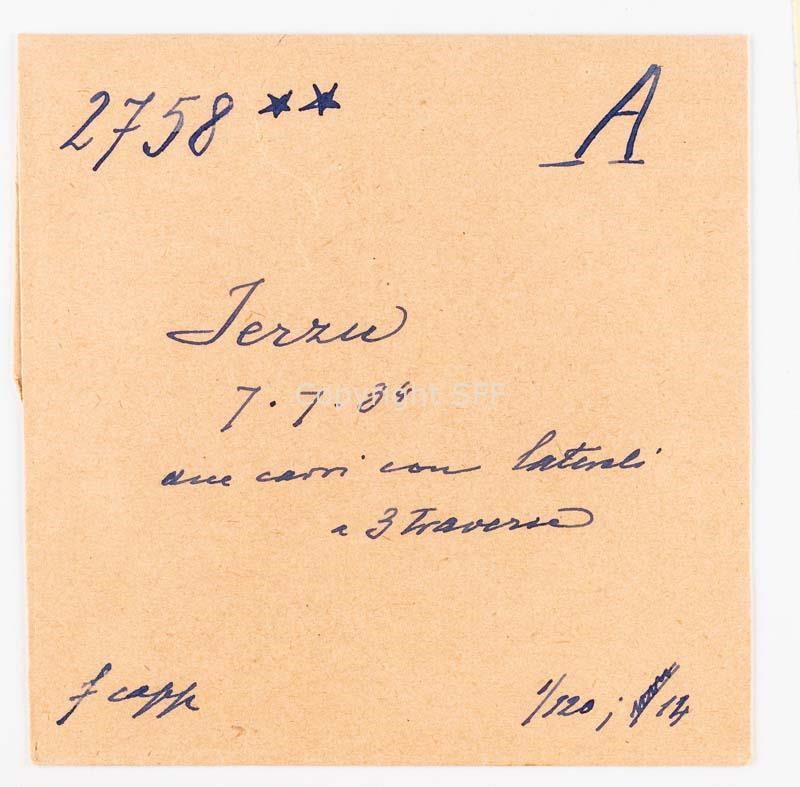 2758 ** A
Jerzu
7.7.
Copyright SFF
due carri con laterali
a 3 traverse
f capp
1/120; 14